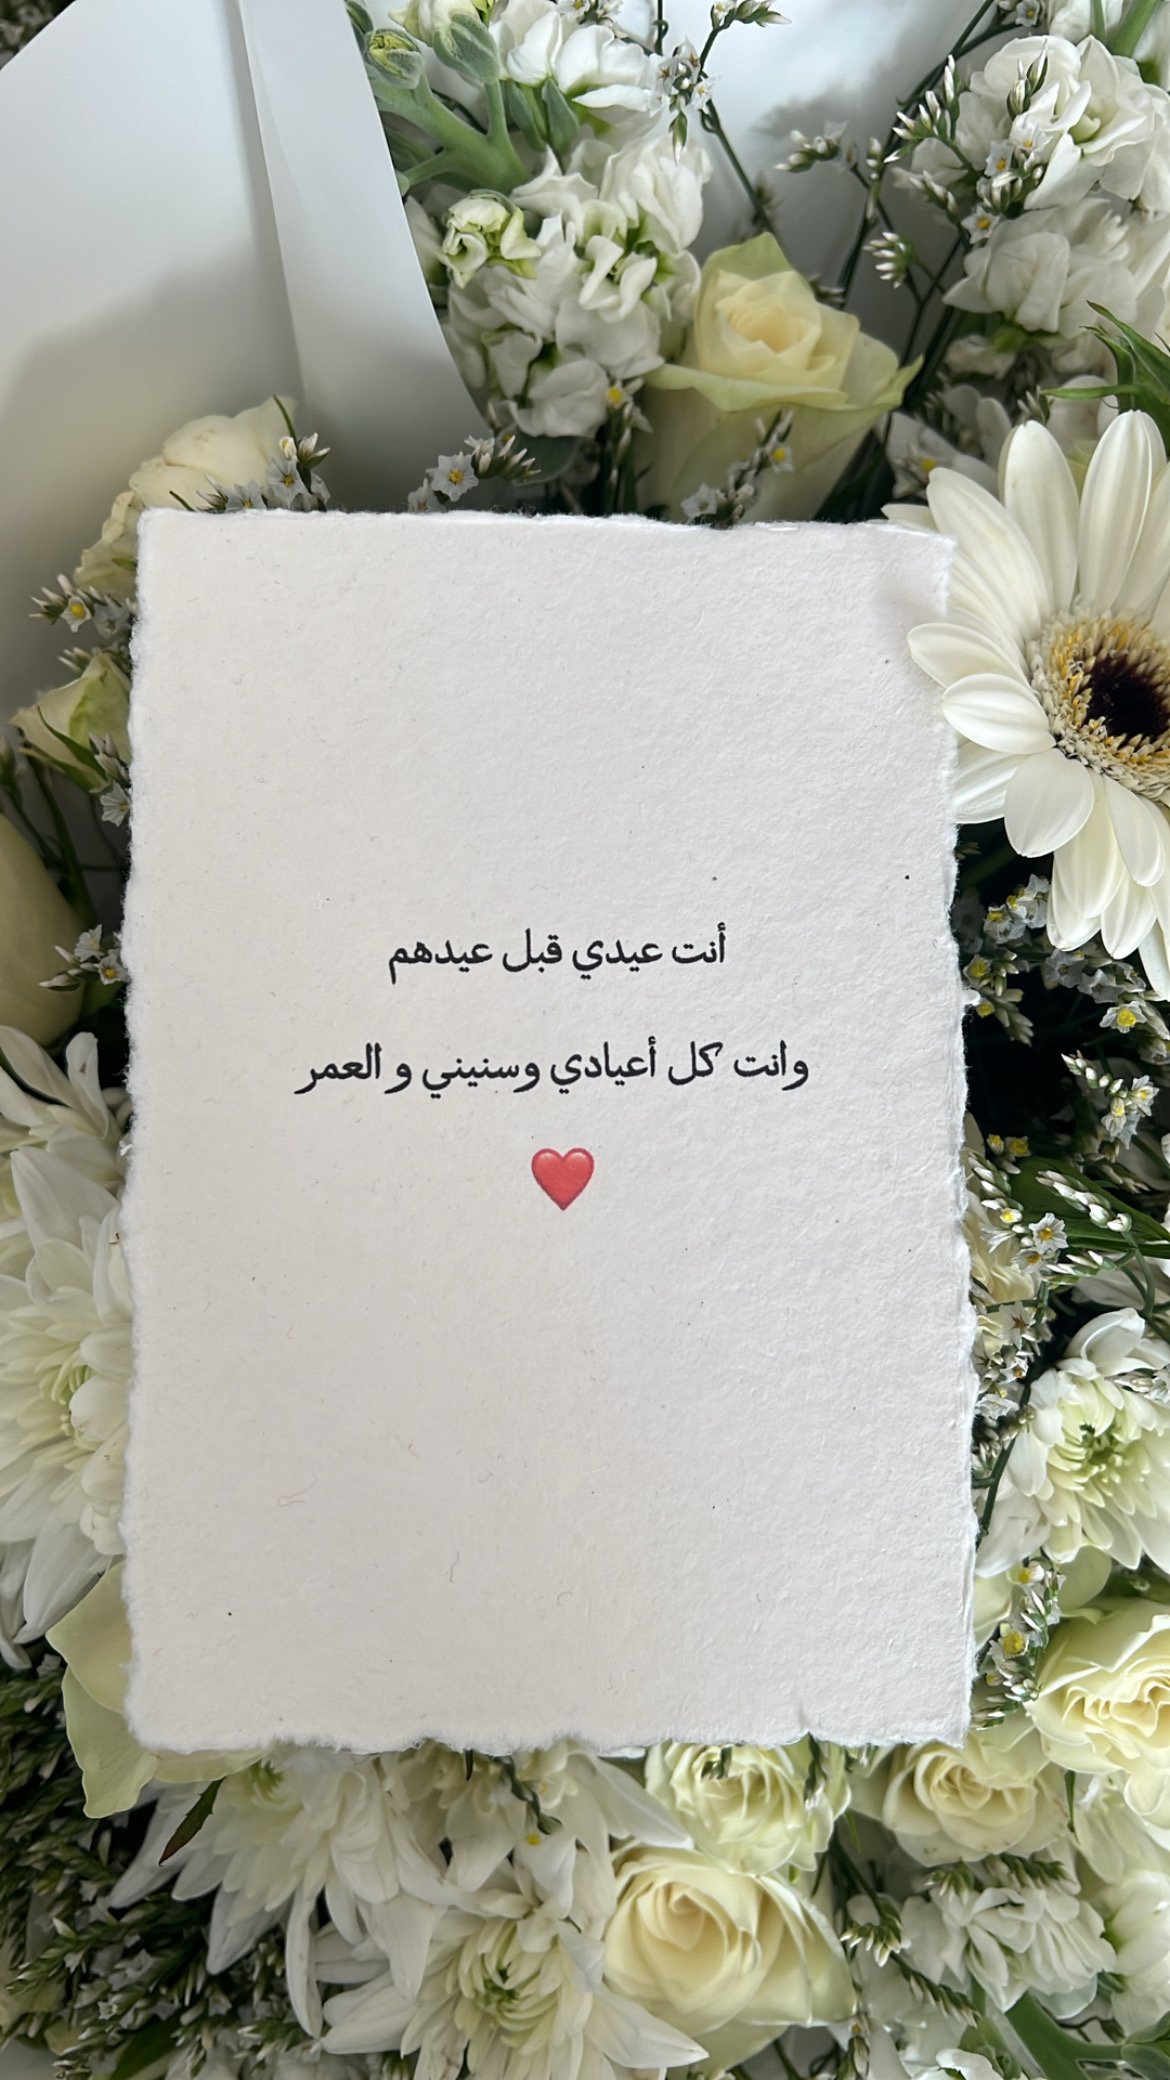 أنت عيدي قبل عيدهم
وانت كل أعيادي وسنيني و العمر
❤️